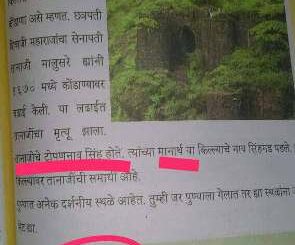 कोंढाणा असे म्हणत. छत्रपती
शिवाजी महाराजांचा सेनापती
तानाजी मालुसरे ह्यांनी
१६७० मध्ये कोंढाण्यावर
चढाई केली. या लढाईत
तानाजींचा मृत्यू झाला.
तानाजींचे टोपणनाव सिंह होते. त्यांच्या मानार्थ या किल्ल्याचे नाव सिंहगड पडले.
किल्ल्यावर तानाजींची समाधी आहे.
पुण्यात अनेक दर्शनीय स्थळे आहेत. तुम्ही जर पुण्याला गेलात तर ह्या स्थळांना
भेट द्या.